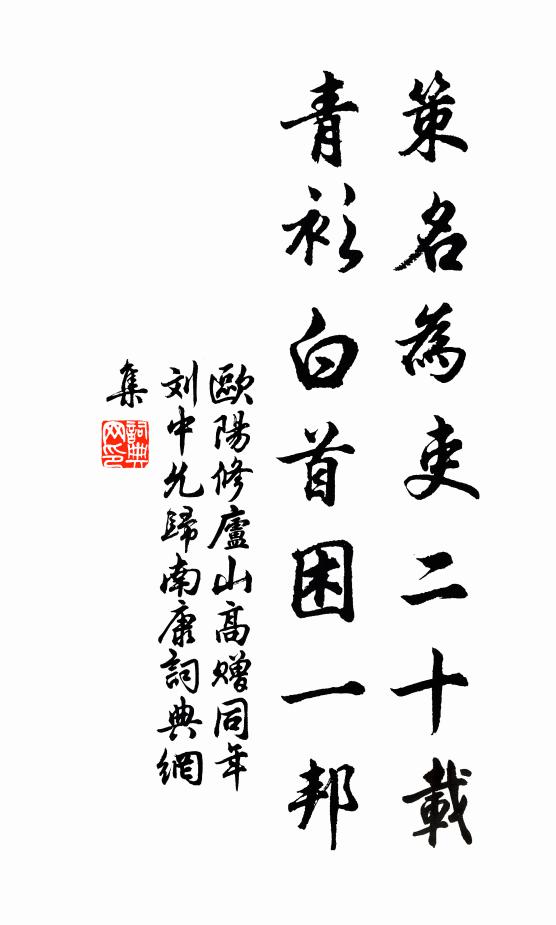 策名為吏二十載
青衫白首困一邦
歐陽修廬山高贈同年
刘中允歸南康詞典網
集
詞典
网印